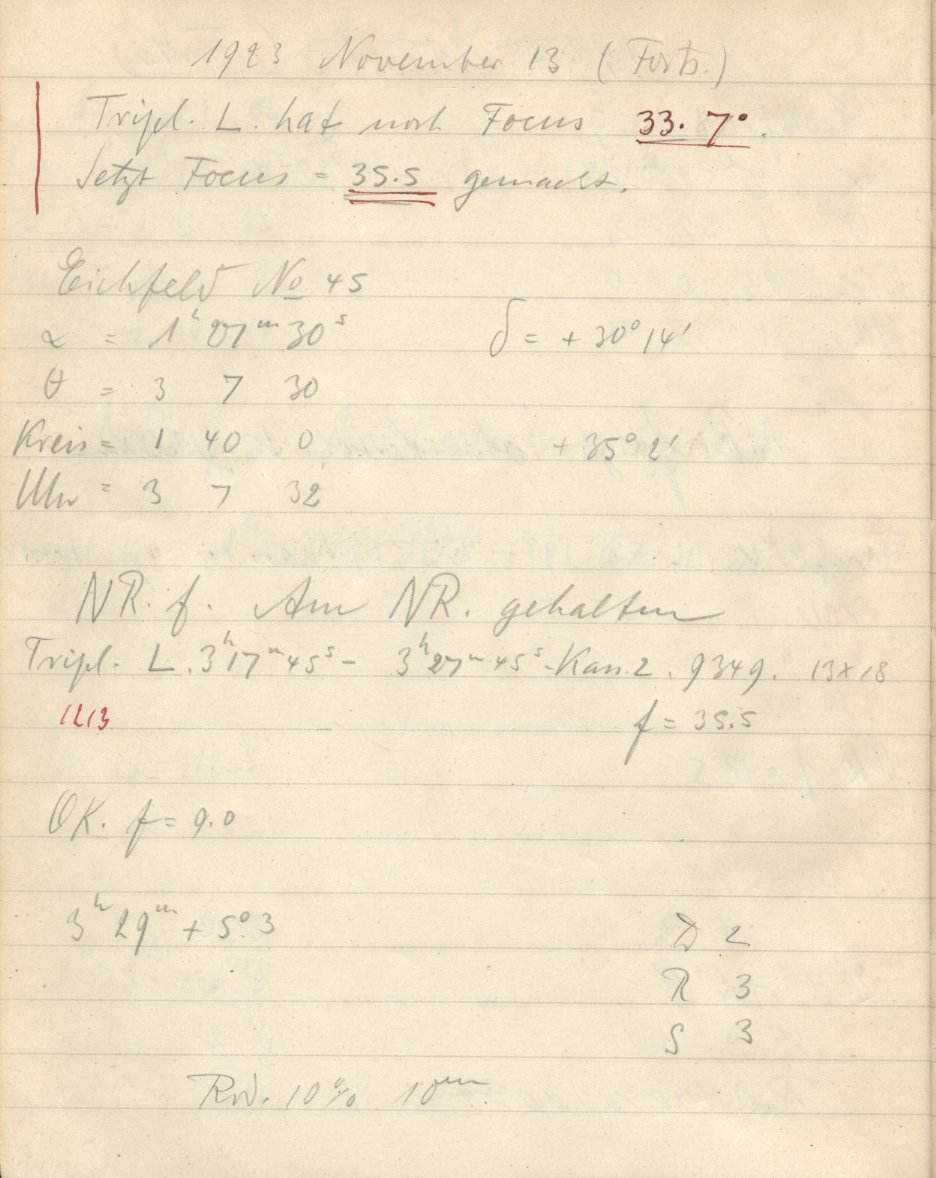 1923 November 13 (Forts.)
Tripl. L. hat noch Focus 33.7°.
Jetzt Focus = 35.5 gemacht.
Eichfeld No 45
α = 1h 27m 30s δ = + 30° 14'
θ = 3 7 30
Kreis = 1 40 0 + 35° 2'
Uhr = 3 7 32
NR. f. Am NR. gehalten
Tripl. L. 3h 17m 45s - 3h 27m 45s. Kass. 2. 9349. 13x18
1213 f = 35.5
OK. f = 9.0
3h 29m + 5°.3
D 2
R 3
S 3
Rod. 10% 10m